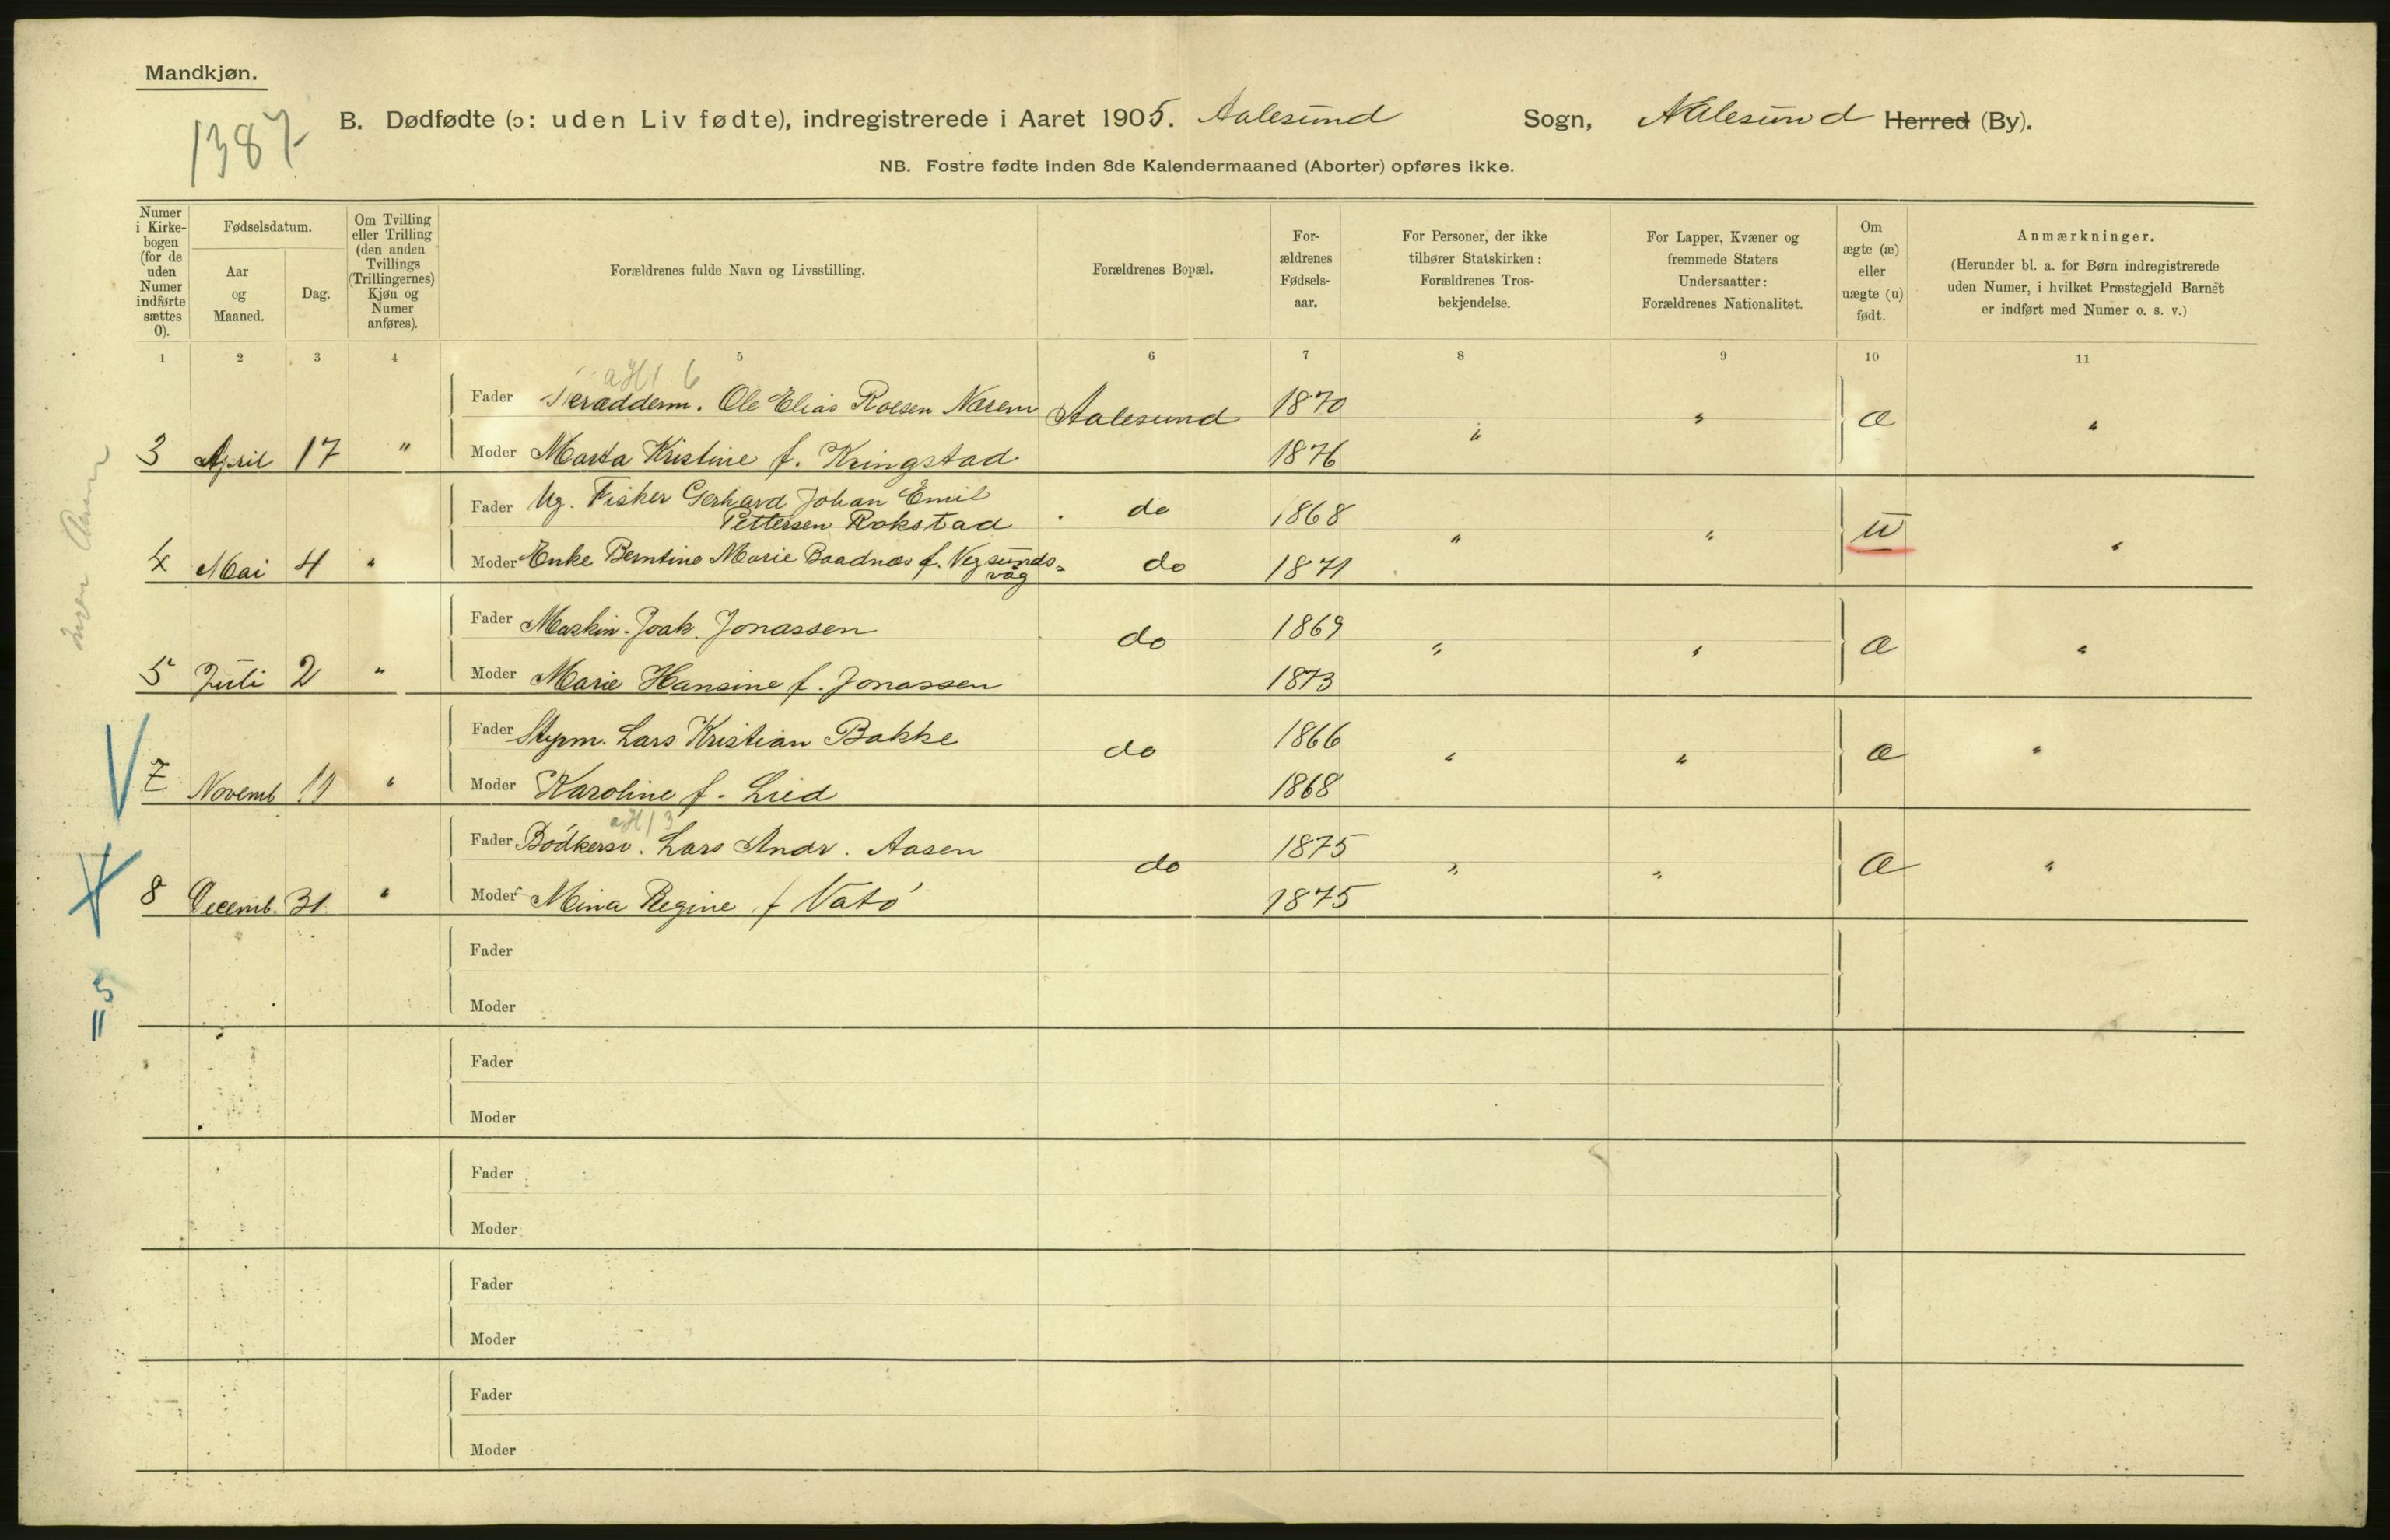 Mandkjøn.
1387
B. Dødfødte (ɔ: uden Liv fødte), indregistrerede i Aaret 1905. Aalesund Sogn, Aalesund Herred (By).
NB. Fostre fødte inden 8de Kalendermaaned (Aborter) opføres ikke.
Numer i Kirke-bogen (for de uden Numer indførte sættes 0).
Fødselsdatum.
Aar og Maaned.
Dag.
Om Tvilling eller Trilling (den anden Tvillings (Trillingernes) Kjøn og Numer anføres).
Forældrenes fulde Navn og Livsstilling.
Forældrenes Bopæl.
For-ældrenes Fødsels-aar.
For Personer, der ikke tilhører Statskirken: Forældrenes Tros-bekjendelse.
For Lapper, Kvæner og fremmede Staters Undersaatter: Forældrenes Nationalitet.
Om ægte (æ) eller uægte (u) født.
Anmærkninger.
(Herunder bl. a. for Børn indregistrerede uden Numer, i hvilket Præstegjeld Barnet er indført med Numer o. s. v.)
1 2 3 4 5 6 7 8 9 10 11
Fader Ole Elias Roesen Aalesund 1870 " æ "
3 April 17 " Moder Marta Kristine f. Kringstad 1876 "
Fader Ug. Fisker Gerhard Johan Emil
Pettersen Rokstad do 1868 " " u "
4 Mai 4 " Moder Enke Berntine Marie Baadnes f. Vegsunds-
våg do 1871
Fader Maskin. Joak. Jonassen do 1869 " " æ "
5 Juli 2 " Moder Marie Hansine f. Jonassen 1873
Fader Styrm. Lars Kristian Bakke do 1866 " " æ "
7 Novemb 11 " Moder Karoline f. Lied 1868
Fader Bødkersv. Lars Andr. Aasen do 1875 " " æ "
8 Decemb. 31 " Moder Mina Regine f Vatø 1875
= 5
Fader
Moder
Fader
Moder
Fader
Moder
Fader
Moder
Fader
Moder